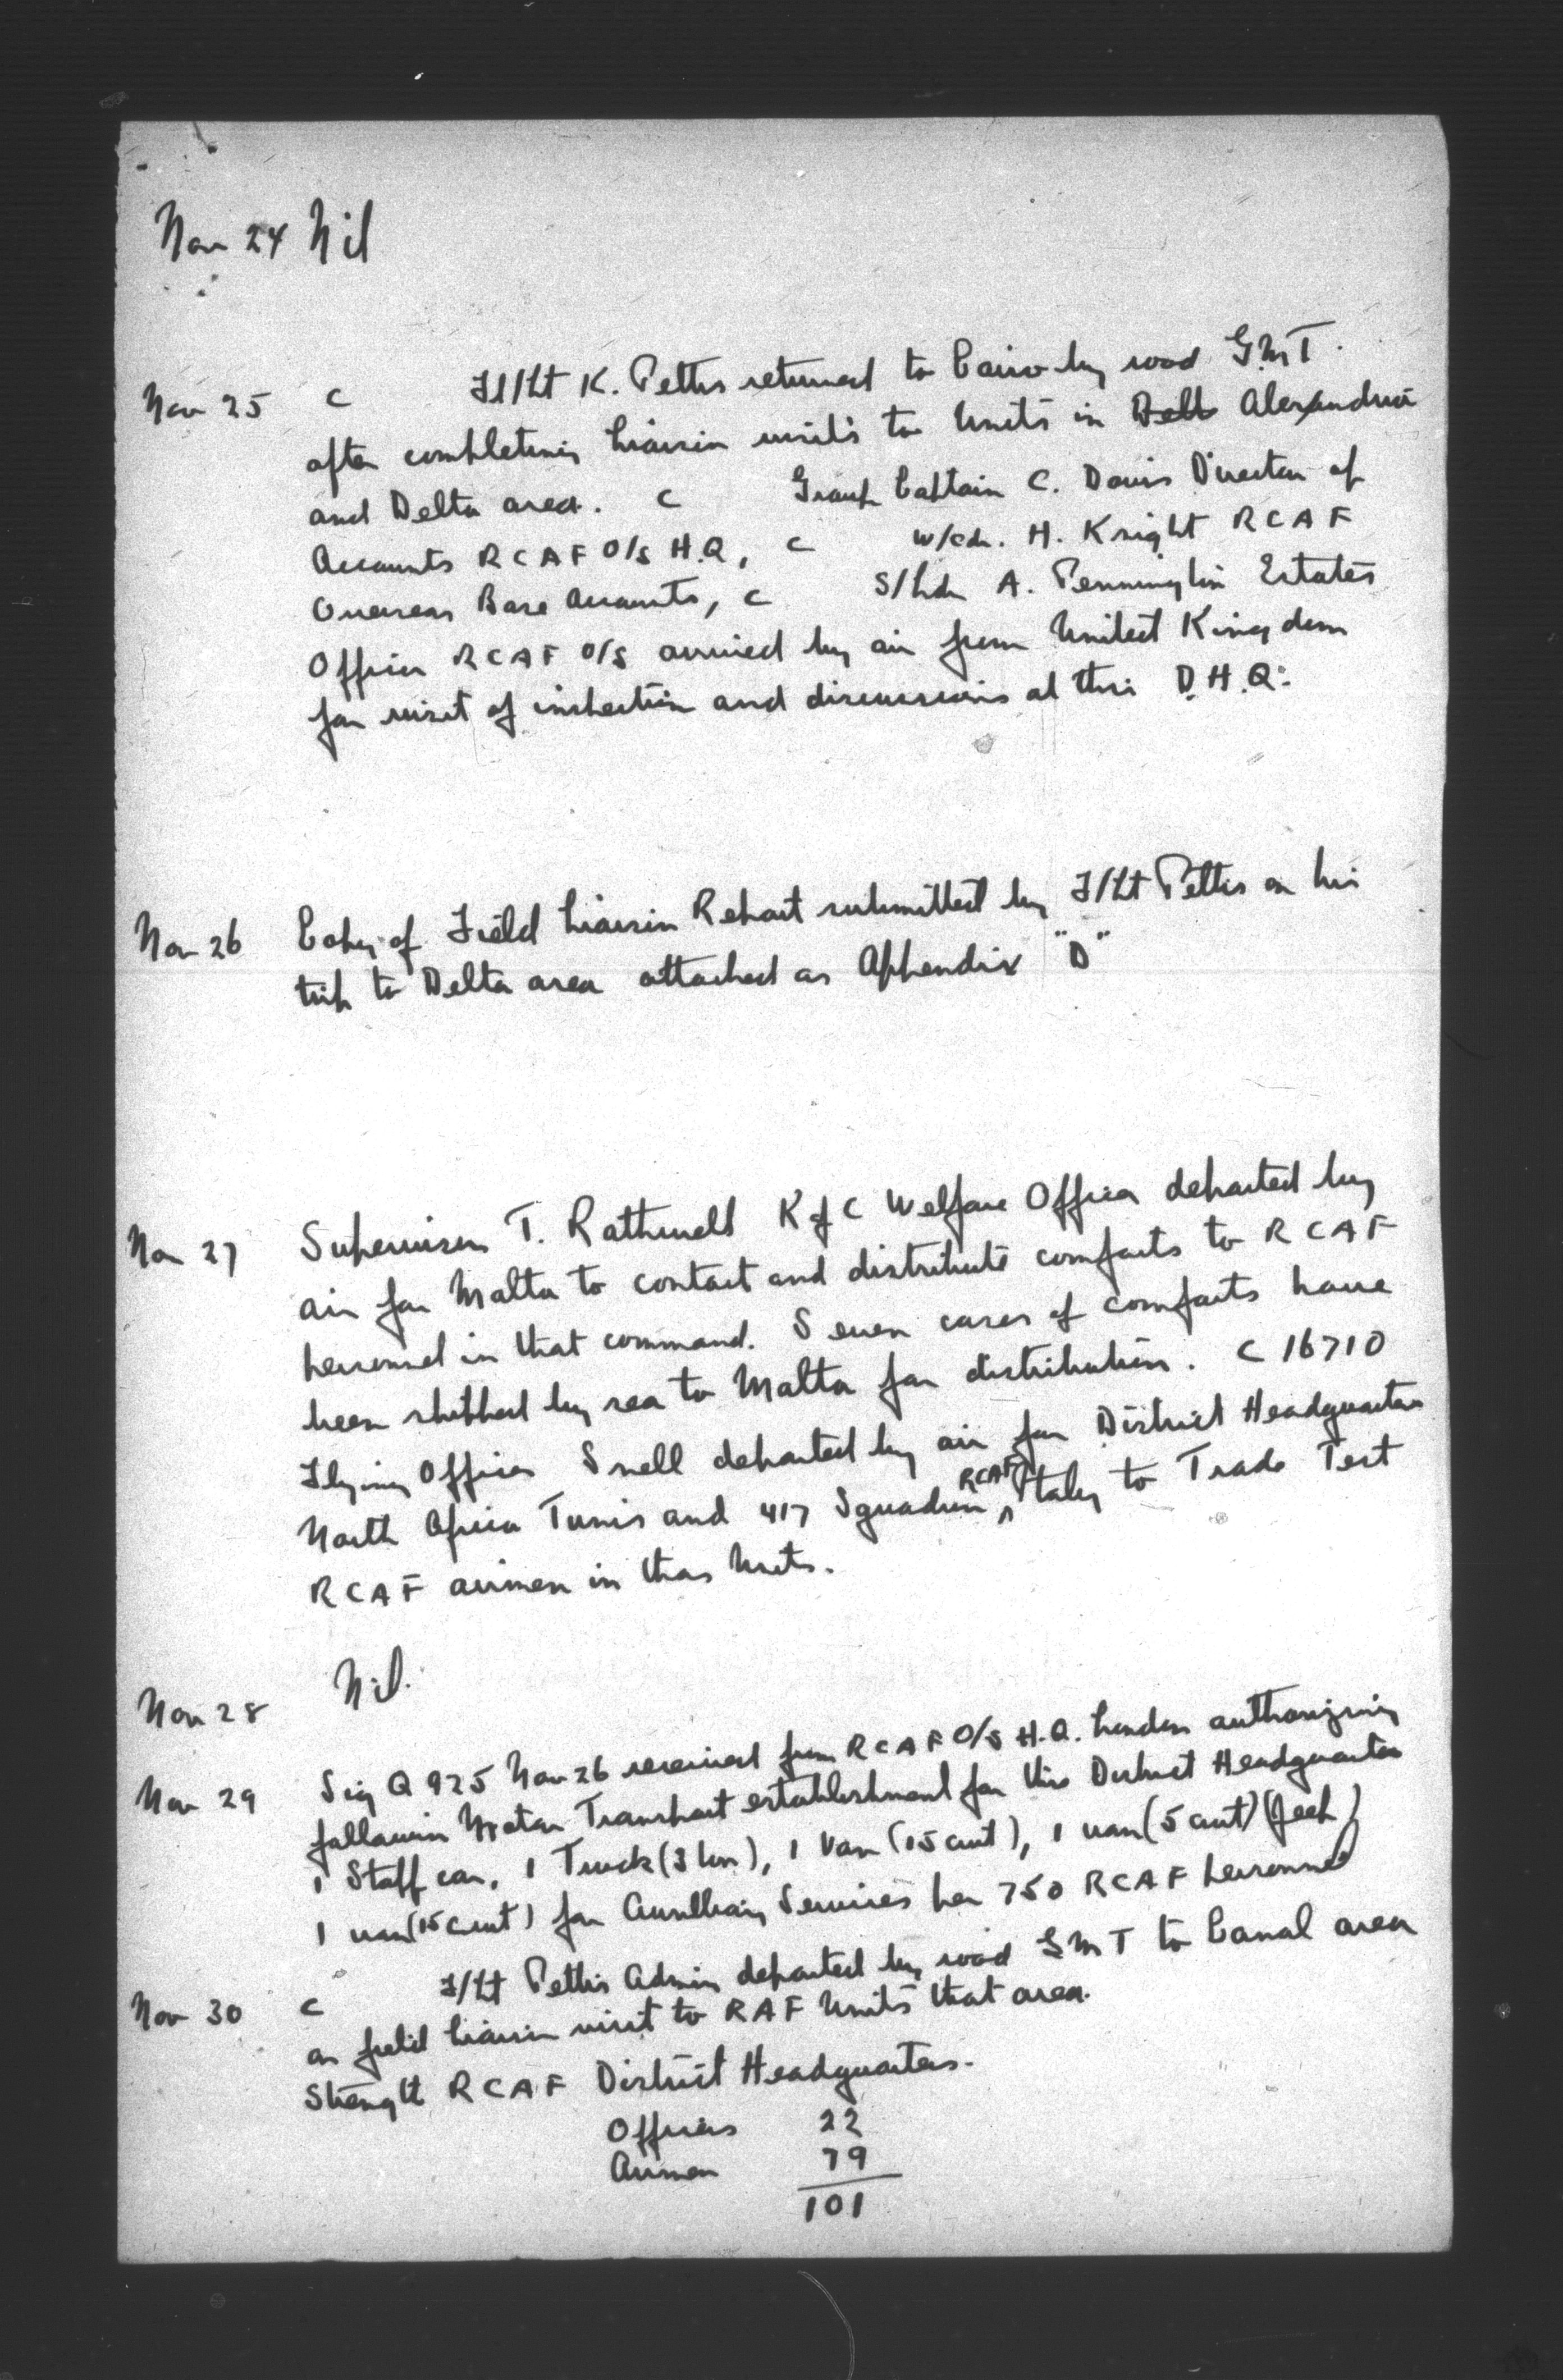 Nov 24 Nil
Nov 25 C Fl/Lt K. Pettis returned to Cairo by road G.M.T.
after completing liaison visits to Units in Delt Alexandria
and Delta area. C Group Captain C. Davis Director of
Accounts RCAF O/S H.Q, C W/Cdr. H. Knight RCAF
Overseas Base Accounts, C S/Ldr A. Pennington Estates
Officer RCAF O/S arrived by air from United Kingdom
for visit of inspection and discussions at this D.H.Q.
Nov 26 Copy of Field Liaison Report submitted by F/Lt Pettis on his
trip to Delta area attached as Appendix "D"
Nov 27 Supervisor T. Rathwell K of C Welfare Officer departed by
air for Malta to contact and distribute comforts to RCAF
personnel in that command. Seven cases of comforts have
been shipped by sea to Malta for distribution. C 16710
Flying Officer Snell departed by air for District Headquarters
North Africa Tunis and 417 Squadron RCAF Italy to Trade Test
RCAF airmen in thos Units.
Nov 28 Nil.
Nov 29 Sig Q 925 Nov 26 received from RCAF O/S H.Q. London authorizing
followin Motor Transport establishment for this District Headquarters
1 Staff car, 1 Truck (3 ton), 1 Van (15 cwt), 1 van (5 cwt) (Jeep)
1 van (15 cwt) for Auxilliary Services per 750 RCAF personnel
Nov 30 C F/Lt Pettis Admin departed by road G M T to Canal area
on field liaison visit to RAF Units that area.
Strenght RCAF District Headquarters.
Officers 22
Airmen 79
101